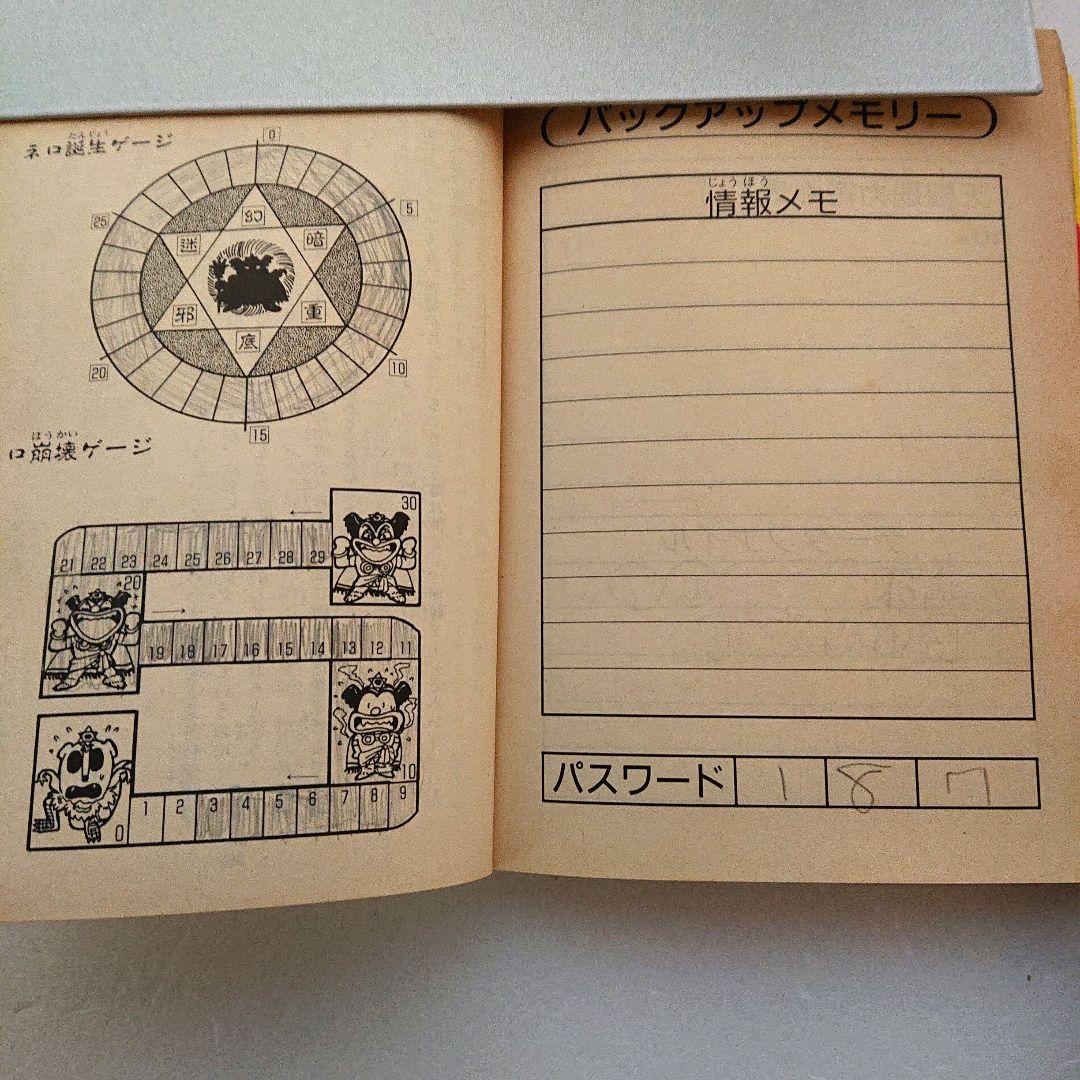 ネロ誕生ゲージ
たんじょう
0
5
10
15
20
25
幻
暗
重
底
邪
迷
ロ崩壊ゲージ
ほうかい
30
21 22 23 24 25 26 27 28 29
20
19 18 17 16 15 14 13 12 11
10
0 1 2 3 4 5 6 7 8 9
バックアップメモリー
じょうほう
情報メモ
パスワード 1 8 7